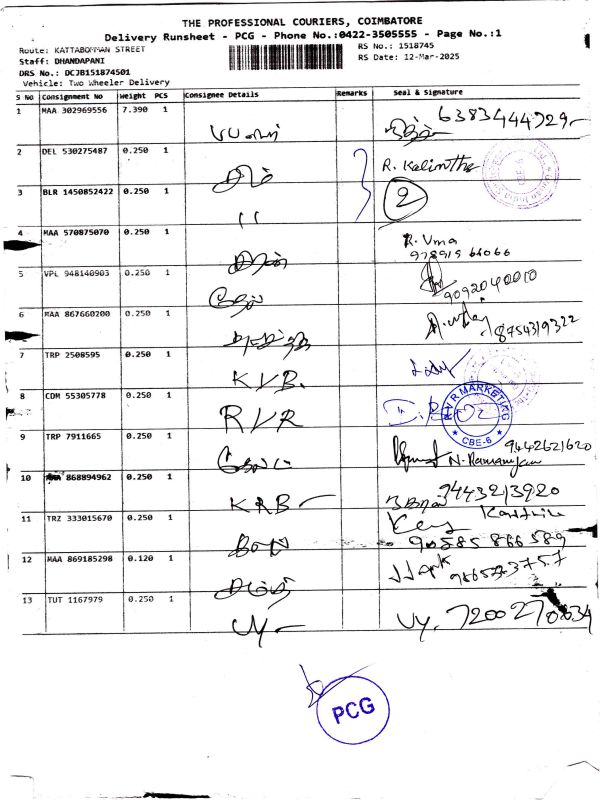 THE PROFESSIONAL COURIERS, COIMBATORE
Delivery Runsheet - PCG - Phone No.:0422-3505555 - Page No.:1
Route: KATTABOMMAN STREET
RS No.: 1518745
Staff: DHANDAPANI
RS Date: 12-Mar-2025
DRS No.: DCJB151874501
Vehicle: Two Wheeler Delivery
S NO Consignment No Weight PCS Consignee Details Remarks Seal & Signature
1 MAA 302969556 7.390 1 6383444929
2 DEL 530275487 0.250 1 R. Kalintha
3 BLR 1450852422 0.250 1 11 2
4 MAA 570875070 0.250 1 R. Uma
97891566066
5 VPL 948140903 0.250 1 9092040010
6 MAA 867660200 0.250 1 8754319322
7 TRP 2508595 0.250 1 KVB.
8 CDM 55305778 0.250 1 RVR R V R MARKETING CBE-6
9 TRP 7911665 0.250 1 9442621620
N. Ramanujam
10 MAA 868894962 0.250 1 KRB 9443213920
11 TRZ 333015670 0.250 1 BON
90585 866589
12 MAA 869185298 0.120 1
13 TUT 1167979 0.250 1 Uy Uy. 7200270034
PCG